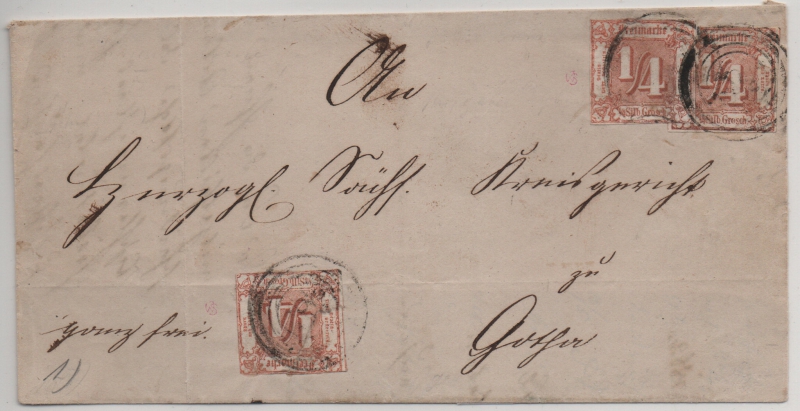 Freimarke
1/4
Silb. Grosch.
1/4
Silb. Grosch.
An
Herzogl. Sächs. Kreisgericht
zu
Gotha
ganz frei.
1/4
Freimarke
1)